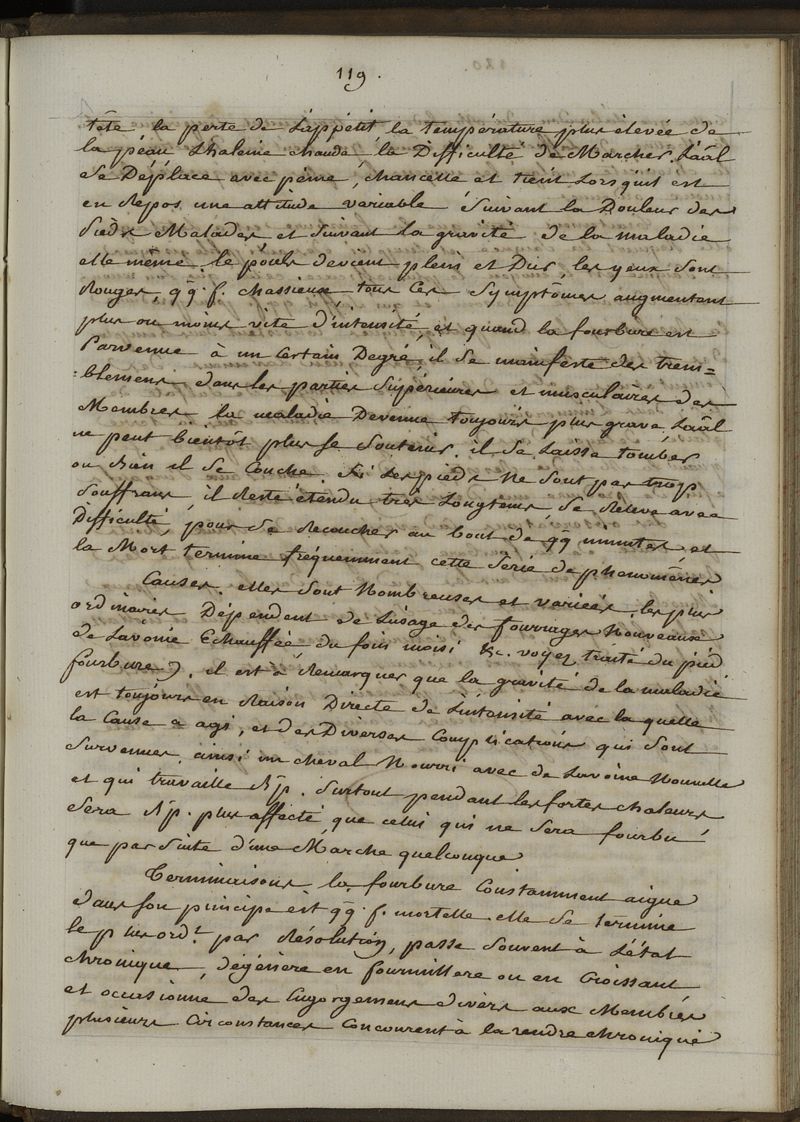 119.
tête la perte de L'appétit, la température plus élevée de
la péau L'haleine chaude, la Difficulté de Marcher. L'aâl
Se Déplace avec péine, chancelle et tient Lorsqu'il est
en Repos une attitude variable Suivant la Douleur des
Pieds Malades et Suivant La gravité de la maladie
elle même. le pouls devient plein et Dur, les yeux Sont
Rouges, qq. f. chassieux, tous Ces Symptômes augmentent
plus ou moins vite d'intensité, et quand la fourbure est
Parvenue à un Certain Degré, il Se manifeste des trem=
=blemens dans les parties Supérieures et musculaires des
Membres la maladie Devenue toujours plus grave, L'aâl
ne peut bientôt plus Se Soutenir. il Se Laisse tomber
ou Bien il Se Couche. Si Les pieds Ne Sont pas trop
Souffrans, il Reste étendu très Longtems, Se Rélève avec
Difficulté, pour Se Recoucher au bout de qq minutes, et
la Mort termine fréquemment cette Série de phenomênes
Causes. elles Sont Nombreuses et variées, les plus
ordinaires Dépendent de L'usage des fourrages Nouveaux
de L'avoine Echauffée, du foin moisi &c. voyez traité du pied
fourbure). il est à Remarquer que la gravité de la maladie
est toujours en Raison Directe de L'intensité avec la quelle
la Cause a agi, et des Diverses Complications qui Sont
Survenues. ainsi un cheval Nourri avec de L'avoine Nouvelle
et qui travaille Bp. Surtout pendant les fortes chaleurs
Sera Bp. plus affecté que celui qui ne Sera fourbu
que par Suite d'une Marche quelconque
Terminaisons la fourbure Constamment aigue
dans Son principe est qq. f. mortelle. elle Se termine
le plus ord.t par Résolution, passe Souvent à L'état
chronique, dégénère en fourmillere ou en Croissant
et occasionne des Engorgemens divers aux Membres
plusieurs Circonstances Concourent à la rendre chronique